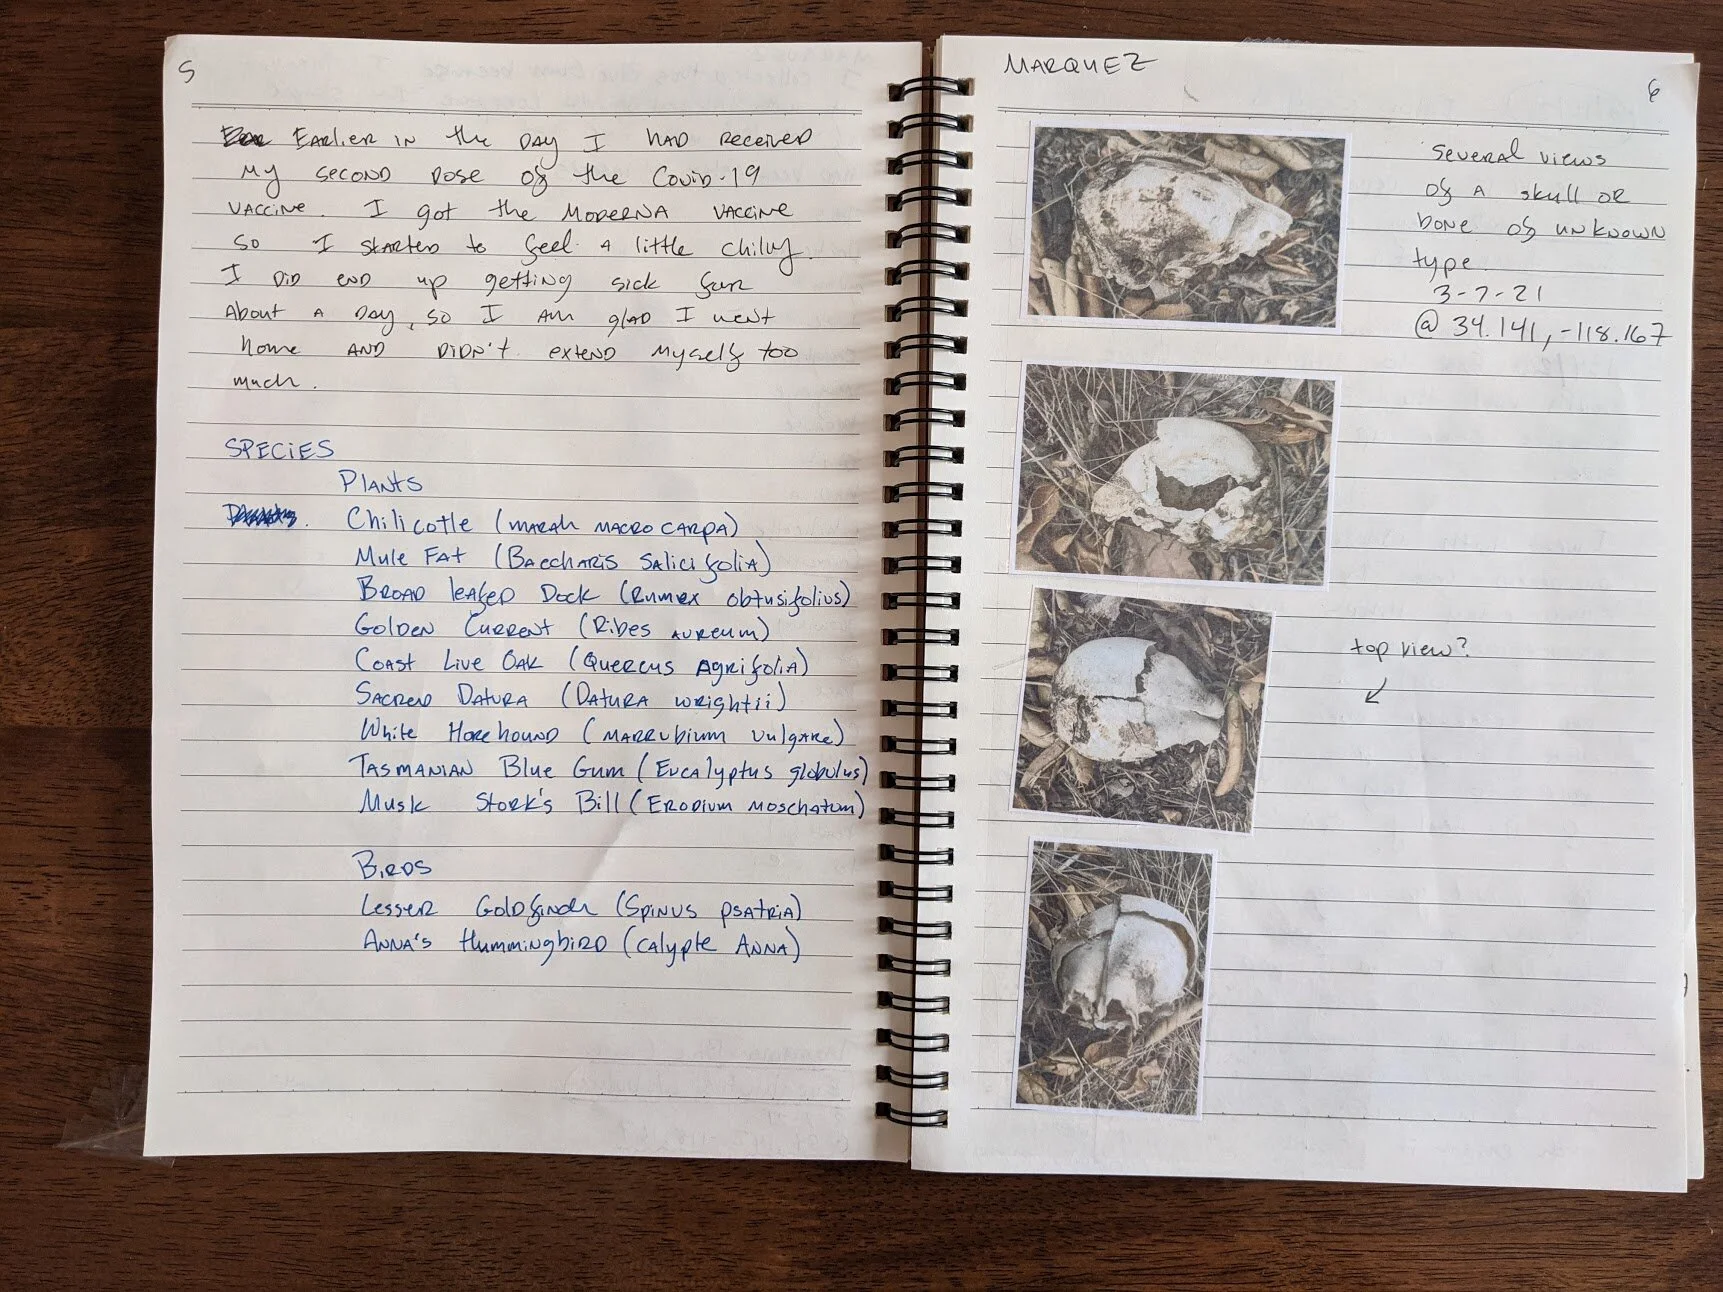 5
Earlier in the day I had received
my second dose of the Covid-19
vaccine. I got the Moderna vaccine
so I started to feel a little chilly.
I did end up getting sick for
about a day, so I am glad I went
home and didn't extend myself too
much.
SPECIES
Plants
Chilicotle (marah macrocarpa)
Mule Fat (Baccharis Salicifolia)
Broad leafed Dock (Rumex obtusifolius)
Golden Current (Ribes aureum)
Coast Live Oak (Quercus Agrifolia)
Sacred Datura (Datura wrightii)
White Horehound (marrubium vulgare)
Tasmanian Blue Gum (Eucalyptus globulus)
Musk Stork's Bill (Erodium moschatum)
Birds
Lesser Goldfinch (Spinus psatria)
Anna's Hummingbird (calypte Anna)
MARQUEZ
6
Several views
of a skull or
bone of unknown
type.
3-7-21
@ 34.141, -118.167
top view?